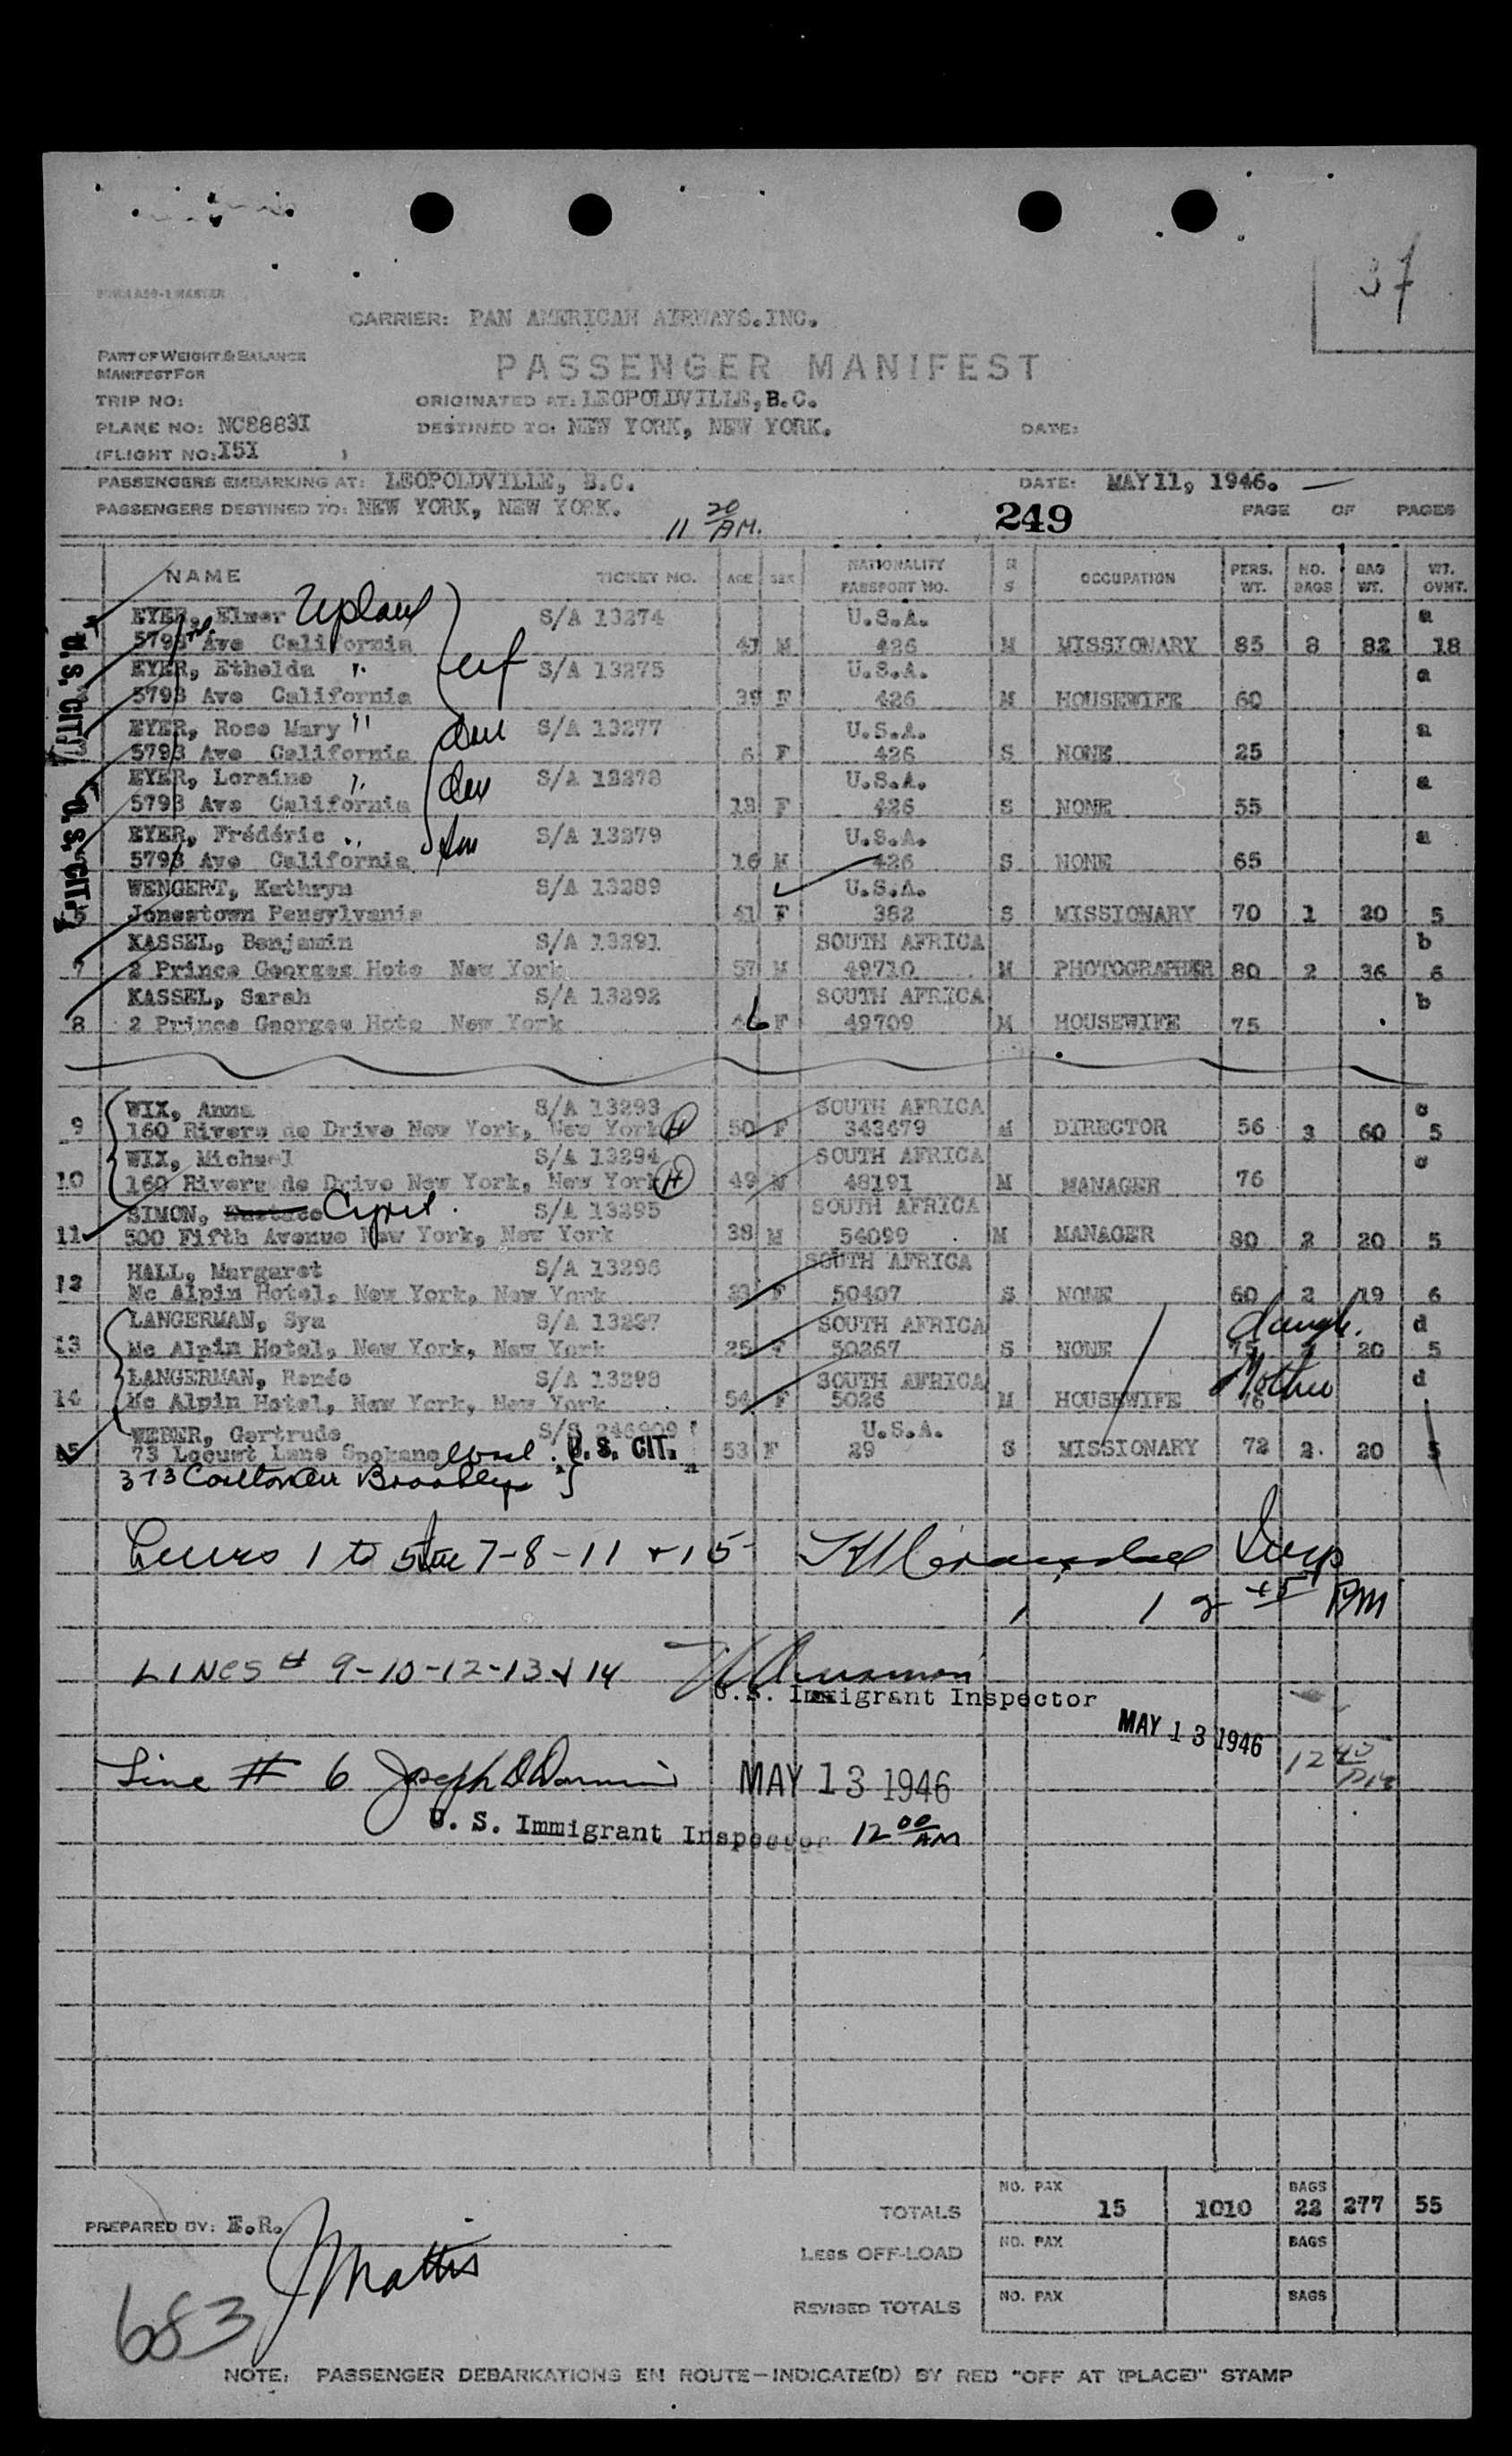 37
FORM A50-1 MASTER
CARRIER: PAN AMERICAN AIRWAYS.INC.
PART OF WEIGHT & BALANCE
MANIFEST FOR
PASSENGER MANIFEST
TRIP NO:
ORIGINATED AT: LEOPOLDVILLE, B.C.
PLANE NO: NC88831
DESTINED TO: NEW YORK, NEW YORK.
DATE:
(FLIGHT NO: I5I )
PASSENGERS EMBARKING AT: LEOPOLDVILLE, B.C.
DATE: MAY 11, 1946.
PASSENGERS DESTINED TO: NEW YORK, NEW YORK.
11 20 AM.
249
PAGE OF PAGES
NAME TICKET NO. AGE SEX NATIONALITY PASSPORT NO. M S OCCUPATION PERS. WT. NO. BAGS BAG WT. WT. OVHT.
EYER, Elmer Upland S/A 13274 U.S.A. a
579 Ave California 41 M 426 M MISSIONARY 85 8 82 18
EYER, Ethelda " S/A 13275 U.S.A. a
5793 Ave California 39 F 426 M HOUSEWIFE 60
EYER, Rose Mary " S/A 13277 U.S.A. a
5793 Ave California 6 F 426 S NONE 25
EYER, Loraine " S/A 13278 U.S.A. a
5793 Ave California 13 F 426 S NONE 55
EYER, Frédéric " S/A 13279 U.S.A. a
5793 Ave California 16 M 426 S NONE 65
U. S. CIT.
U. S. CIT.
WENGERT, Kathryn S/A 13289 U.S.A.
6 Jonestown Pensylvania 41 F 382 S MISSIONARY 70 1 20 5
KASSEL, Benjamin S/A 13291 SOUTH AFRICA b
7 2 Prince Georges Hote New York 57 M 49710 M PHOTOGRAPHER 80 2 36 6
KASSEL, Sarah S/A 13292 SOUTH AFRICA b
8 2 Prince Georges Hote New York 46 F 49709 M HOUSEWIFE 75
WIX, Anna S/A 13293 SOUTH AFRICA c
9 160 Rivers de Drive New York, New York H 50 F 343479 M DIRECTOR 56 3 60 5
WIX, Michael S/A 13294 SOUTH AFRICA c
10 160 Rivers de Drive New York, New York H 49 M 48191 M MANAGER 76
SIMON, Cyril. S/A 13295 SOUTH AFRICA
11 500 Fifth Avenue New York, New York 38 M 54099 M MANAGER 80 2 20 5
HALL, Margaret S/A 13296 SOUTH AFRICA
12 Mc Alpin Hotel, New York, New York F 50407 S NONE 60 2 19 6
LANGERMAN, Sya S/A 13297 SOUTH AFRICA daugh. d
13 Mc Alpin Hotel, New York, New York 25 F 50267 S NONE 75 20 5
LANGERMAN, Renée S/A 13298 SOUTH AFRICA Mother d
14 Mc Alpin Hotel, New York, New York 54 F 5026 M HOUSEWIFE 76
WEBER, Gertrude S/S 246909 U.S.A.
15 73 Locust Lane Spokane U. S. CIT. 53 F 29 S MISSIONARY 72 2 20 5
373 Brooklyn
1 to 5 7-8-11 + 15 Insp
12 45 PM
LINES # 9-10-12-13 & 14
U.S. Immigrant Inspector
MAY 13 1946
12 40 PM
Line # 6 Joseph MAY 13 1946
U. S. Immigrant Inspector 12 00 AM
TOTALS NO. PAX 15 1010 BAGS 22 277 55
PREPARED BY: E.R.
J Mattis
LESS OFF-LOAD NO. PAX BAGS
REVISED TOTALS NO. PAX BAGS
683
NOTE: PASSENGER DEBARKATIONS EN ROUTE—INDICATE(D) BY RED "OFF AT (PLACE)" STAMP